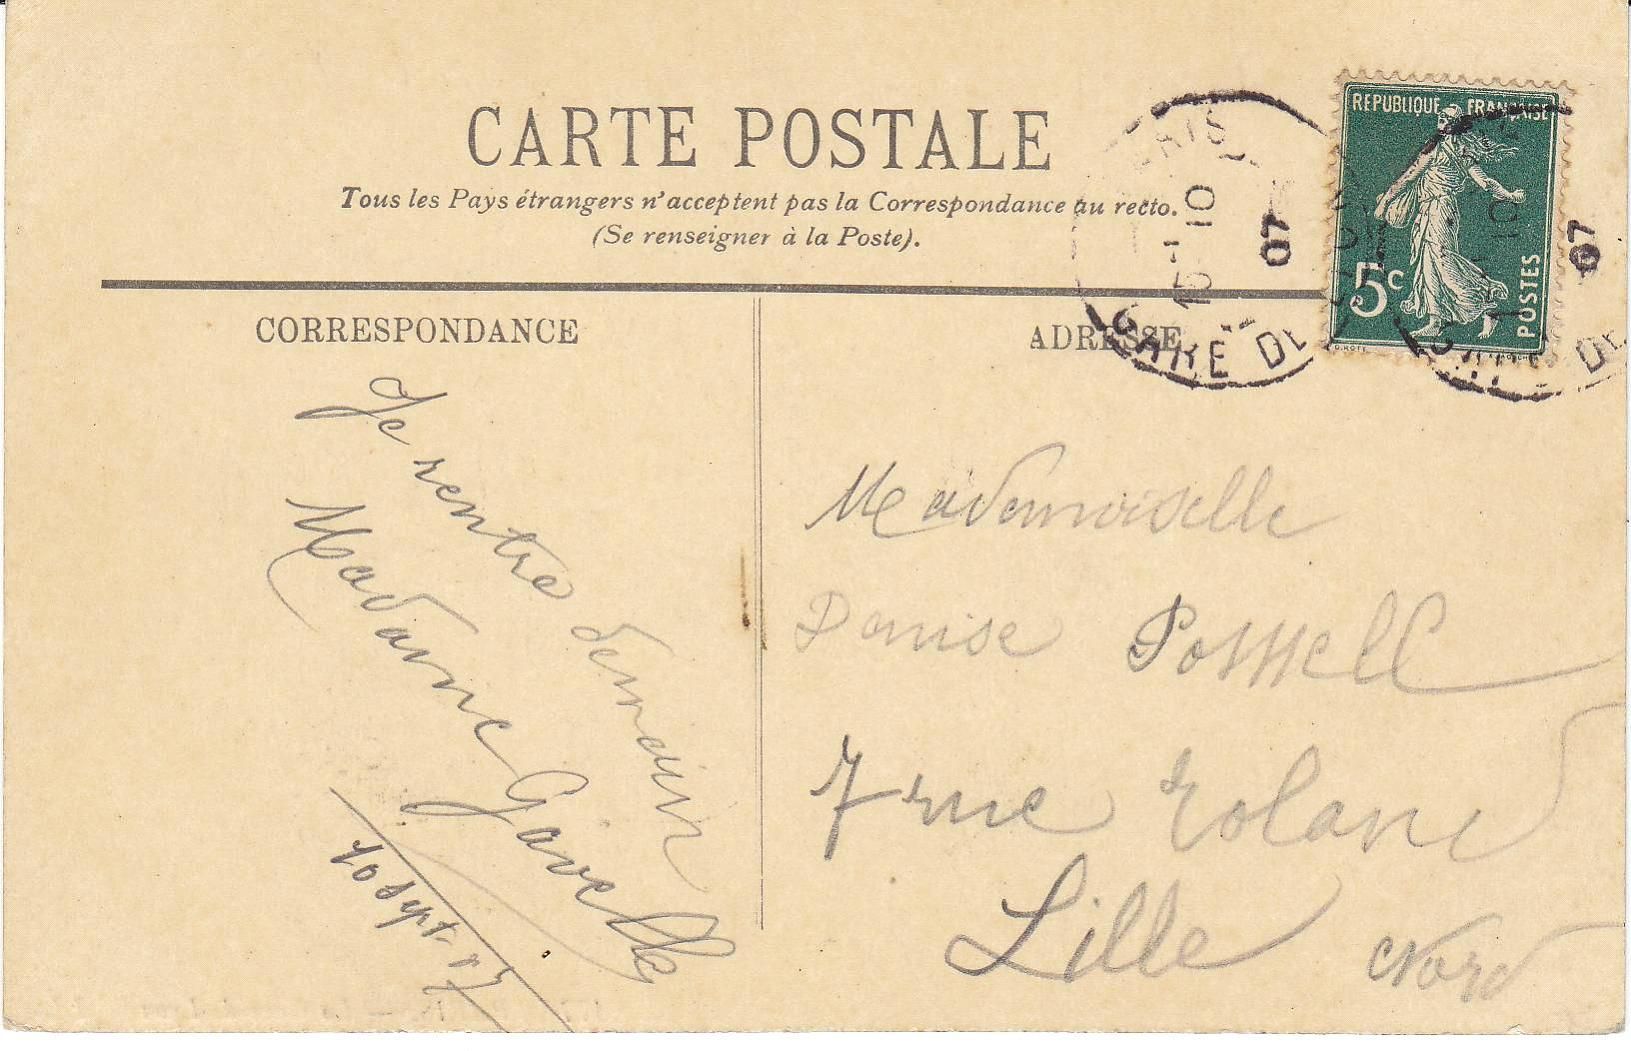 CARTE POSTALE
Tous les Pays étrangers n'acceptent pas la Correspondance au recto.
(Se renseigner à la Poste).
REPUBLIQUE FRANÇAISE
5c
POSTES
15-10
07
GARE DE
10
07
DE
CORRESPONDANCE
ADRESSE
Je rentre demain
Madame Gavelle
10 Sept. 07
Mademoiselle
Denise Possell
7 rue Roland
Lille Nord